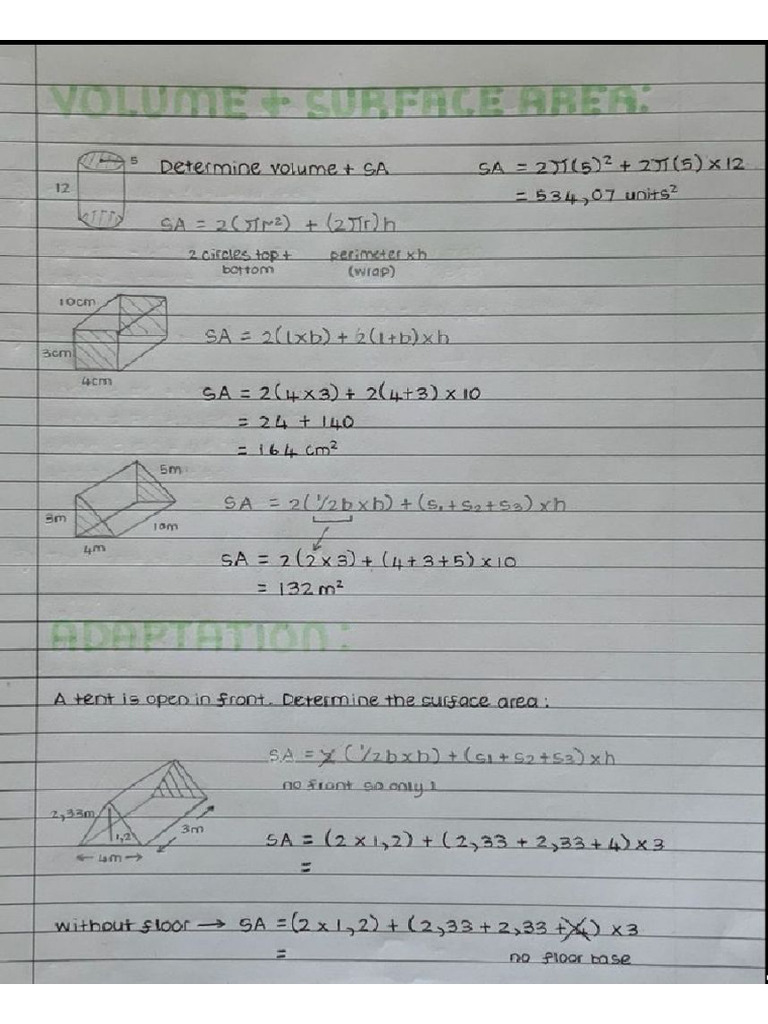 VOLUME + SURFACE AREA:
5
12
Determine volume + SA
SA = 2π(5)² + 2π(5) × 12
= 534,07 units²
SA = 2(πr²) + (2πr)h
2 circles top + bottom
perimeter × h (wrap)
10cm
3cm
4cm
SA = 2(l×b) + 2(l+b)×h
SA = 2(4×3) + 2(4+3) × 10
= 24 + 140
= 164 cm²
5m
3m
10m
4m
SA = 2(1/2b×h) + (s₁+s₂+s₃)×h
SA = 2(2×3) + (4+3+5)×10
= 132 m²
ADAPTATION:
A tent is open in front. Determine the surface area:
SA = 2 (1/2b×h) + (s1+s2+s3)×h
no front so only 1
2,33m
1,2
3m
4m
SA = (2 × 1,2) + (2,33 + 2,33 + 4) × 3
=
without floor → SA = (2 × 1,2) + (2,33 + 2,33 + 4) × 3
=
no floor base